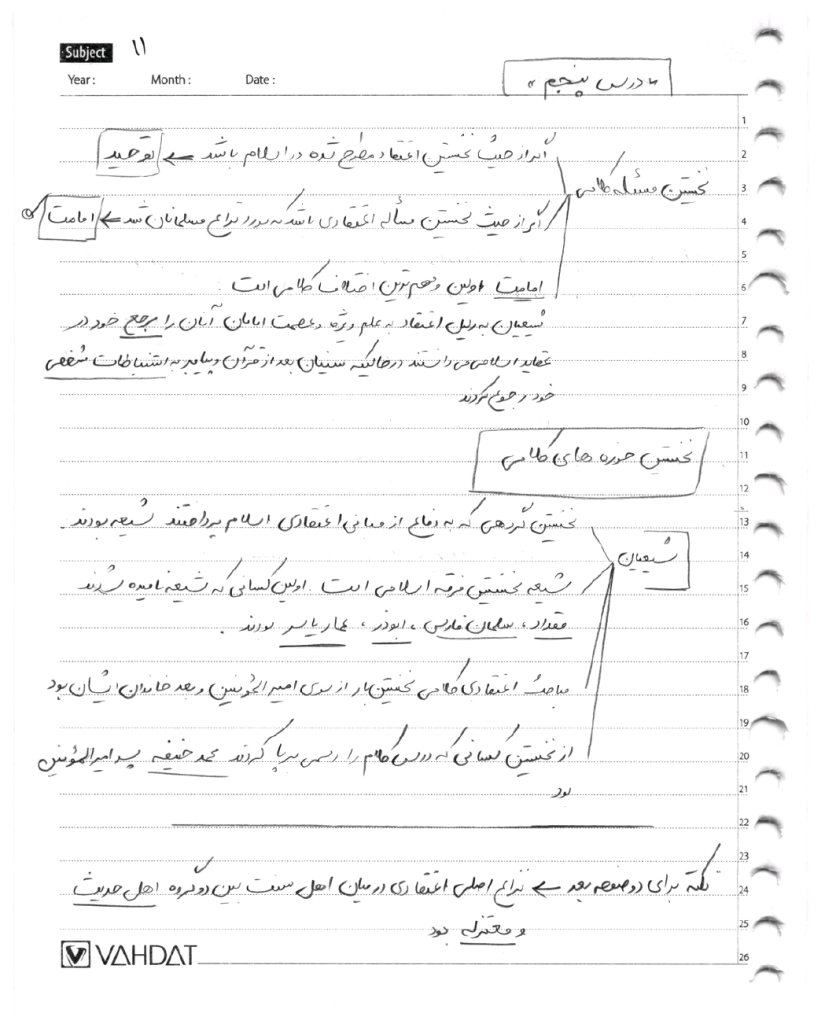 Subject ۱۱
Year : Month : Date :
« درس پنجم »
نخستین مسئله کلامی
اگر از حیث نخستین اعتقاد مطرح شده در اسلام باشد ← توحید
اگر از حیث نخستین مسأله اعتقادی باشد که مورد نزاع مسلمانان شد ← امامت
امامت اولین و مهم ترین اختلاف کلامی است.
شیعیان به دلیل اعتقاد به علم ویژه و عصمت امامان آنان را مرجع خود در
عقاید اسلامی می دانستند درحالیکه سنیان بعد از قرآن و پیامبر به استنباطات شخصی
خود رجوع کردند
نخستین حوزه های کلامی
شیعیان
نخستین گروهی که به دفاع از مبانی اعتقادی اسلام پرداختند شیعه بودند.
شیعه نخستین فرقه اسلامی است. اولین کسانی که شیعه نامیده شدند
مقداد، سلمان فارسی، ابوذر، عمار یاسر بودند.
مباحث اعتقادی کلامی نخستین بار از سوی امیرالمؤمنین و بعد خاندان ایشان بود
از نخستین کسانی که درس کلام را رسمی برپا کردند محمد حنیفه پسر امیرالمؤمنین
بود
نکته برای دو صفحه بعد ← نزاع اصلی اعتقادی در میان اهل سنت بین دو گروه اهل حدیث
و معتزله بود
VAHDAT
1
2
3
4
5
6
7
8
9
10
11
12
13
14
15
16
17
18
19
20
21
22
23
24
25
26